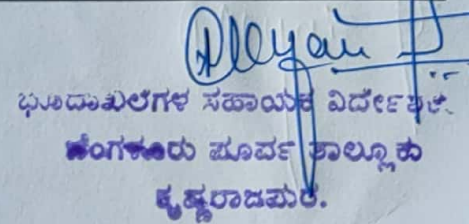 ಭೂದಾಖಲೆಗಳ ಸಹಾಯಕ ನಿರ್ದೇಶಕ.
ಬೆಂಗಳೂರು ಪೂರ್ವ ತಾಲ್ಲೂಕು
ಕೃಷ್ಣರಾಜಪುರ.